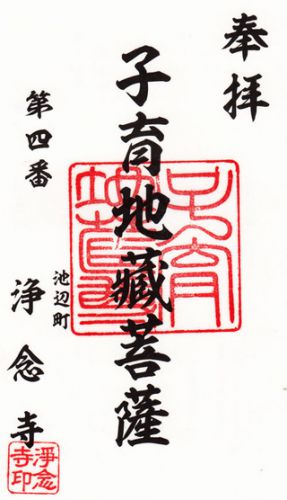 奉拝
子育地藏菩薩
第四番
池辺町
浄念寺
子育地蔵尊
淨念寺印